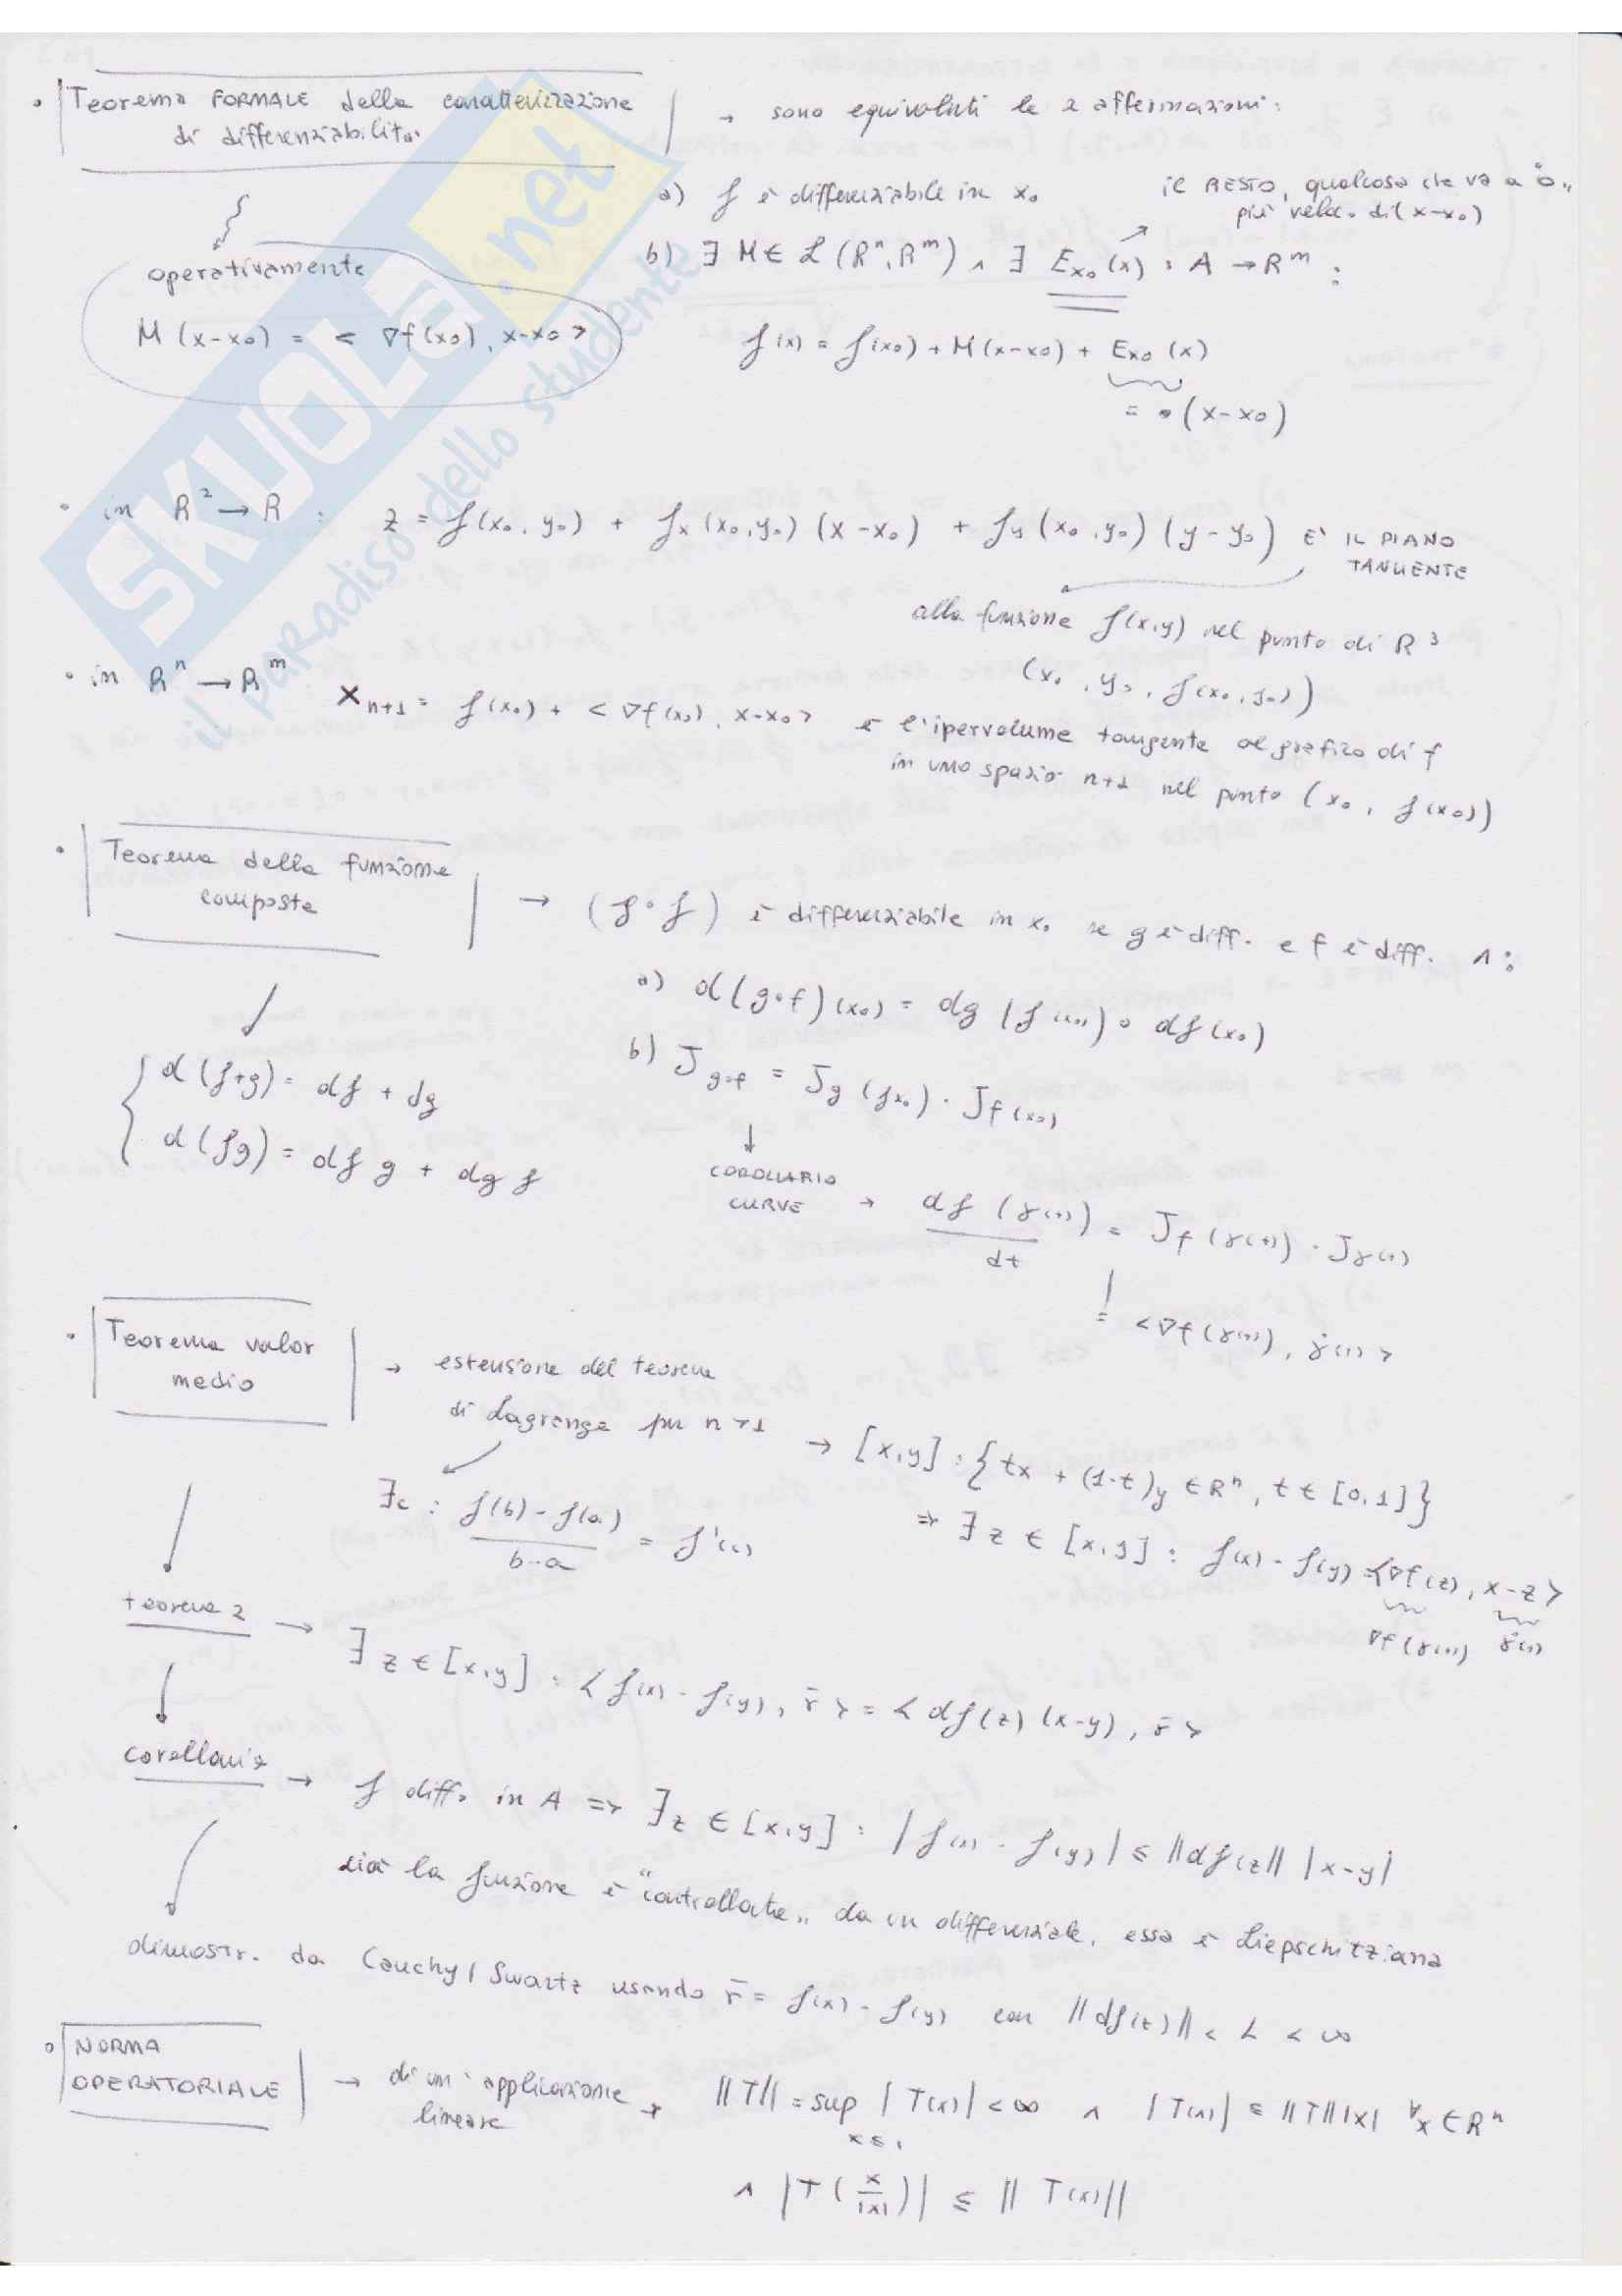 • Teorema FORMALE della caratterizzazione
di differenziabilità
→ sono equivalenti le 2 affermazioni:
a) f è differenziabile in x₀
il RESTO, qualcosa che va a "0"
più veloc. di (x-x₀)
b) ∃ M ∈ L (Rⁿ, Rᵐ) ∧ ∃ Eₓ₀(x) : A → Rᵐ :
f(x) = f(x₀) + M(x-x₀) + Eₓ₀(x)
= o(x-x₀)
operativamente
M (x-x₀) = < ∇f(x₀), x-x₀ >
SKUOLA.net
il paradiso dello studente
• in R² → R : z = f(x₀, y₀) + fₓ(x₀, y₀) (x-x₀) + f_y (x₀, y₀) (y-y₀) E' IL PIANO
TANGENTE
alla funzione f(x,y) nel punto di R³
(x₀, y₀, f(x₀, y₀))
• in Rⁿ → Rᵐ
xₙ₊₁ = f(x₀) + < ∇f(x₀), x-x₀ > è l'ipervolume tangente al grafico di f
in uno spazio n+1 nel punto (x₀, f(x₀))
• Teorema della funzione
composta
→ (g∘f) è differenziabile in x₀ se g è diff. e f è diff. ∧ :
a) d(g∘f)(x₀) = dg (f(x₀)) ∘ df(x₀)
b) J g∘f = Jg (f x₀) · Jf(x₀)
d(f+g) = df + dg
d(fg) = df g + dg f
COROLLARIO
CURVE
→ df (γ(t)) / dt = Jf (γ(t)) · Jγ(t)
= <∇f(γ(t)), γ̇(t)>
• Teorema valor
medio
→ estensione del teorema
di Lagrange per n>1
∃c : f(b) - f(a) / b-a = f'(c)
→ [x,y] : {tx + (1-t)y ∈ Rⁿ, t ∈ [0,1]}
⇒ ∃ z ∈ [x,y] : f(x) - f(y) = <∇f(z), x-z>
∇f(γ(t)) γ̇(t)
teorema 2 → ∃ z ∈ [x,y] : < f(x) - f(y), r̄ > = < df(z) (x-y), r̄ >
corollario → f diff. in A ⇒ ∃ z ∈ [x,y] : |f(x) - f(y)| ≤ ||df(z|| |x-y|
cioè la funzione è "controllata" da un differenziale, essa è Liepschitziana
dimostr. da Cauchy/Swartz usando r̄ = f(x) - f(y) con ||df(z)|| < L < ∞
• NORMA
OPERATORIALE
→ di un'applicazione
lineare
→ ||T|| = sup |T(x)| < ∞ ∧ |T(x)| ≤ ||T|| |x| ∀x ∈ Rⁿ
x ≤ 1
∧ |T(x/|x|)| ≤ || T(x)||